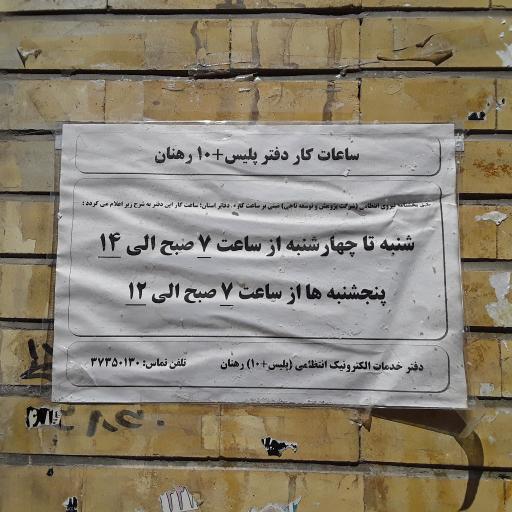 ساعات کار دفتر پلیس+۱۰ رهنان
طبق بخشنامه نیروی انتظامی (شرکت پژوهش و توسعه ناجی) مبنی بر ساعت کار دفاتر استان؛ ساعت کار این دفتر به شرح زیر اعلام می گردد :
شنبه تا چهارشنبه از ساعت ۷ صبح الی ۱۴
پنجشنبه ها از ساعت ۷ صبح الی ۱۲
دفتر خدمات الکترونیک انتظامی (پلیس+۱۰) رهنان تلفن تماس: ۳۷۳۵۰۱۳۰